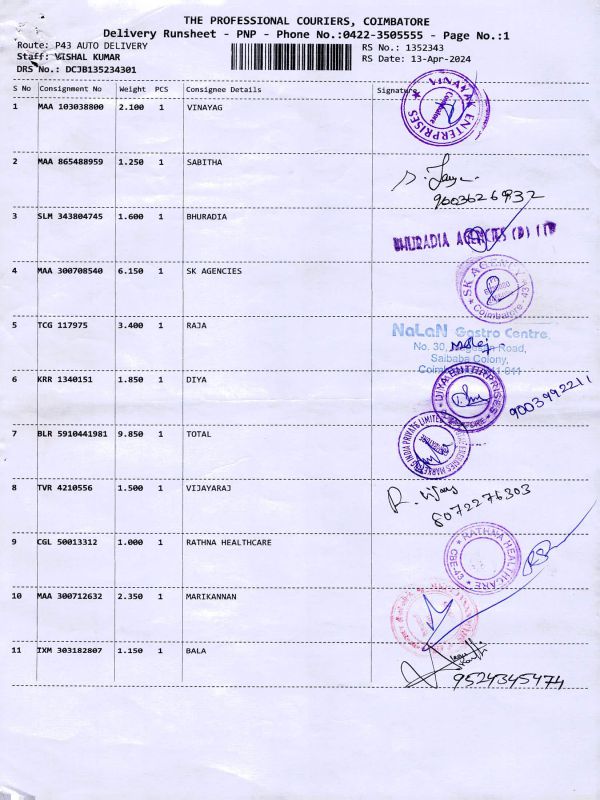 THE PROFESSIONAL COURIERS, COIMBATORE
Delivery Runsheet - PNP - Phone No.:0422-3505555 - Page No.:1
Route: P43 AUTO DELIVERY
RS No.: 1352343
Staff: VISHAL KUMAR
RS Date: 13-Apr-2024
DRS No.: DCJB135234301
S No Consignment No Weight PCS Consignee Details Signature
1 MAA 103038800 2.100 1 VINAYAG
VINAYAK ENTERPRISES
Coimbatore
2 MAA 865488959 1.250 1 SABITHA
9003626932
3 SLM 343804745 1.600 1 BHURADIA
BHURADIA AGENCIES (P) LTD
4 MAA 300708540 6.150 1 SK AGENCIES
SK AGENCY
Coimbatore - 43
5 TCG 117975 3.400 1 RAJA
NaLaN Gastro Centre,
No. 30, Road,
Saibaba Colony,
6 KRR 1340151 1.850 1 DIYA
DIYA ENTERPRISES
9003992211
7 BLR 5910441981 9.850 1 TOTAL
MARKETING INDIA PRIVATE LIMITED
8 TVR 4210556 1.500 1 VIJAYARAJ
R. Vijay
8072276303
9 CGL 50013312 1.000 1 RATHNA HEALTHCARE
RATHNA HEALTHCARE
CBE-43
10 MAA 300712632 2.350 1 MARIKANNAN
11 IXM 303182807 1.150 1 BALA
9524345474